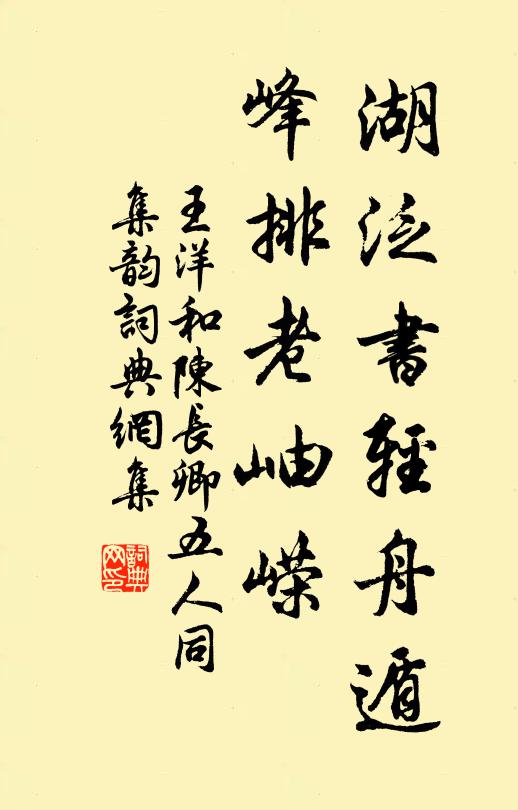 湖泛書輕舟遁
峰排老岫嶸
王洋和陳長卿五人同
集韵詞典網集
詞典網印